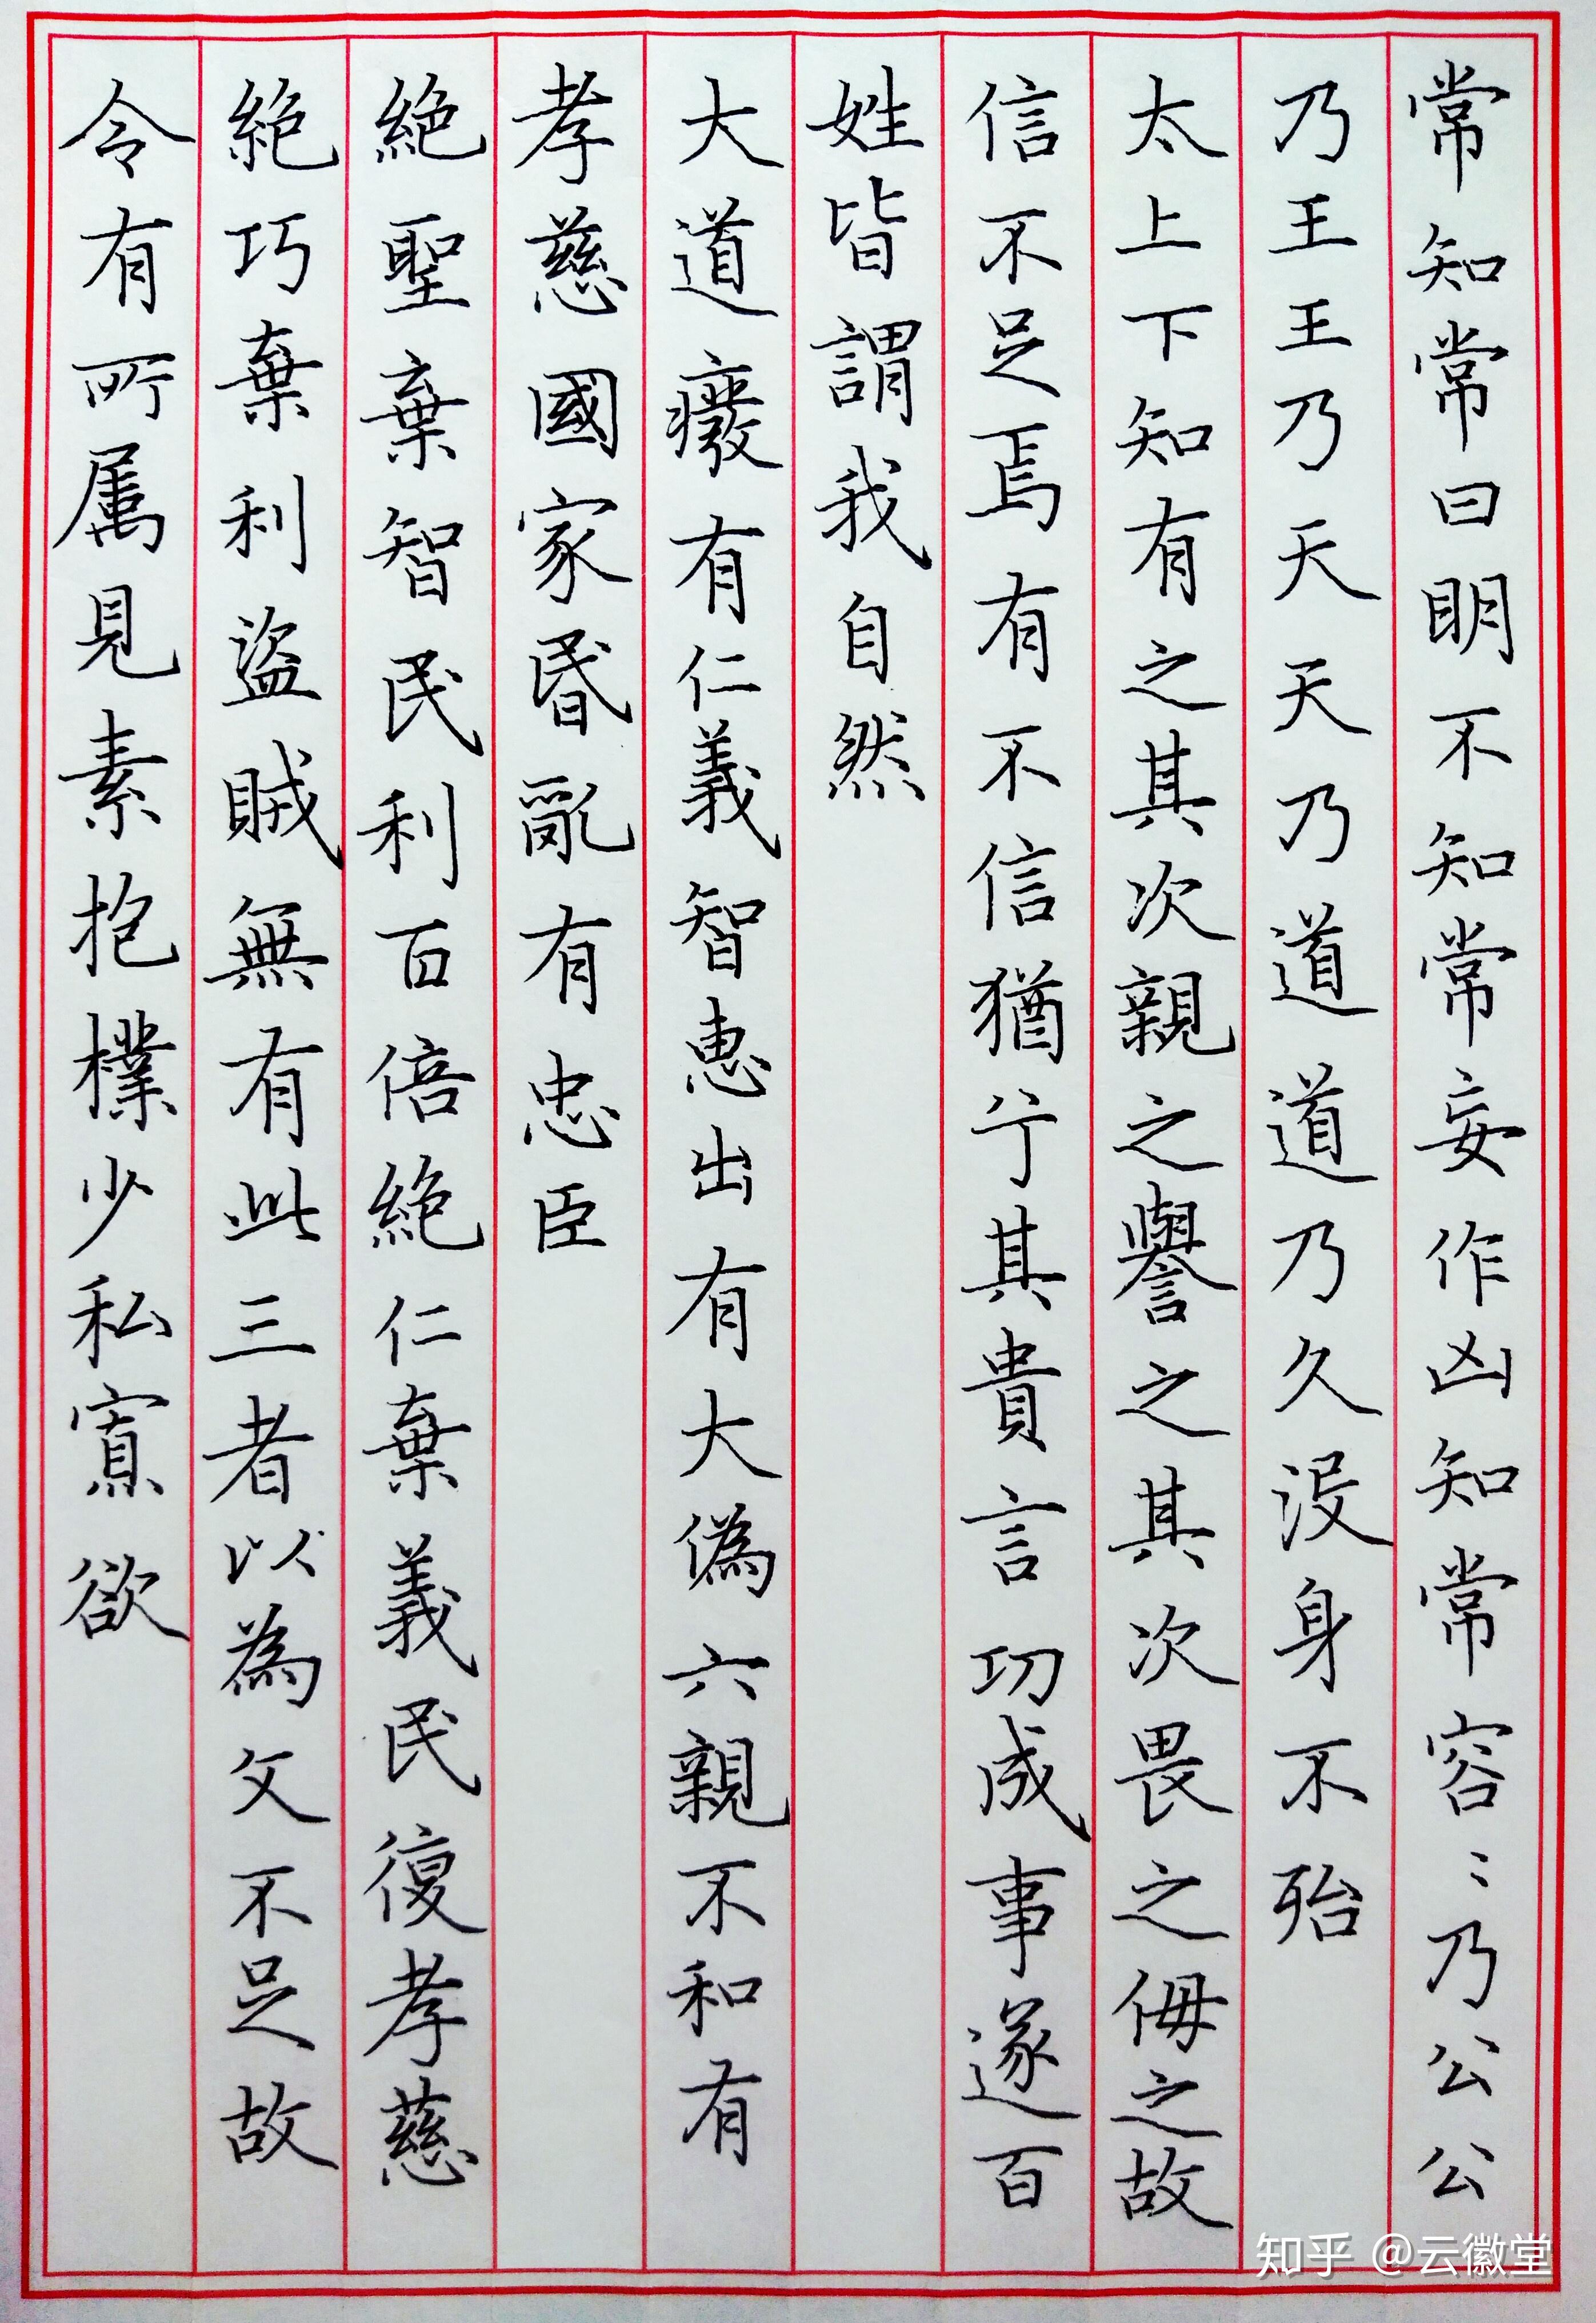 常知常曰明不知常妄作凶知常容〻乃公公
乃王王乃天天乃道道乃久没身不殆
太上下知有之其次親之譽之其次畏之侮之故
信不足焉有不信猶兮其貴言功成事遂百
姓皆謂我自然
大道癈有仁義智惠出有大偽六親不和有
孝慈國家昬亂有忠臣
絕聖棄智民利百倍絕仁棄義民復孝慈
絕巧棄利盜賊無有此三者以為文不足故
令有所属見素抱樸少私寡欲
知乎 @云徽堂